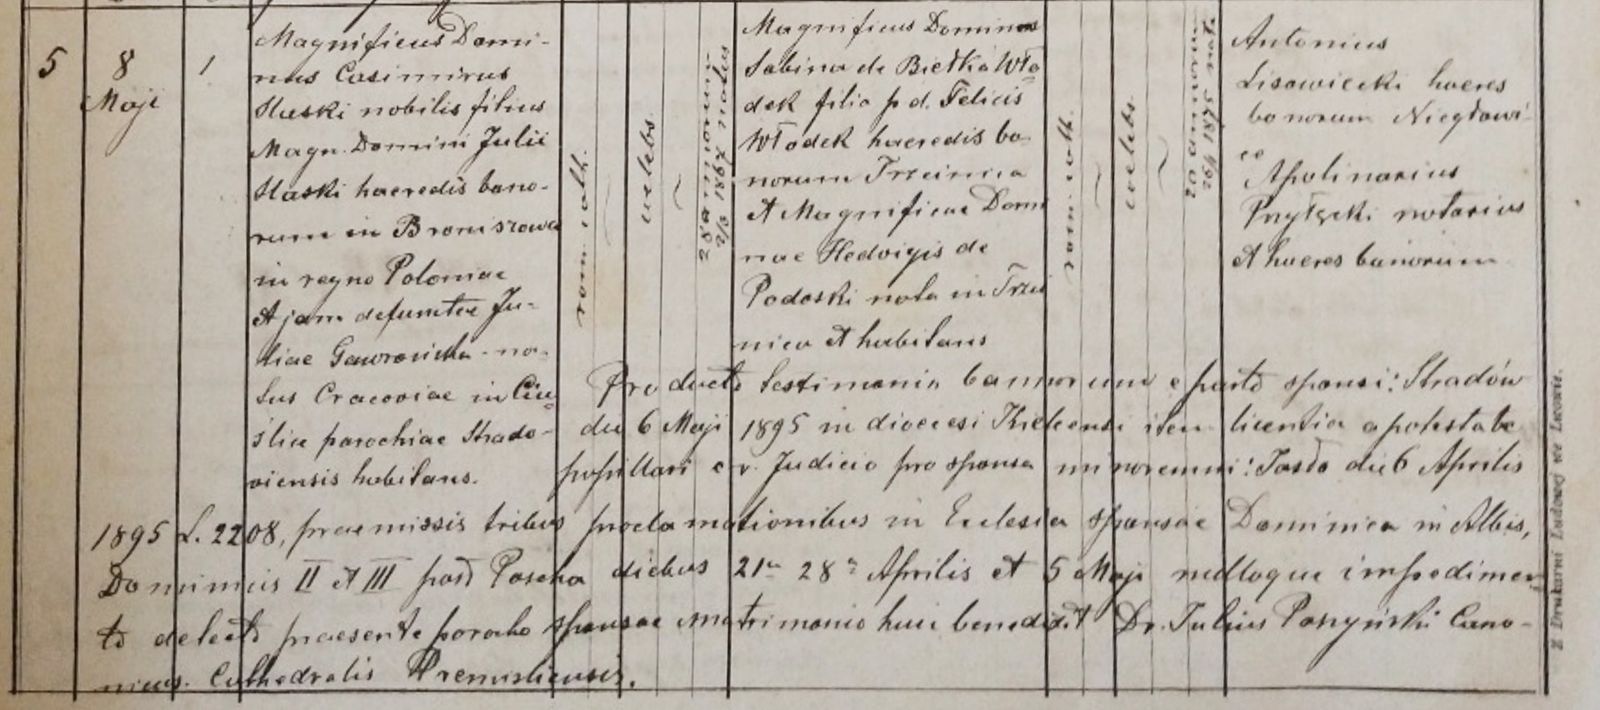 5
8
Maji
1
Magnificus Domi-
nus Casimirus
Slaski nobilis filius
Magn. Domini Julii
Slaski haeredis bono-
rum in Broniszowa
in regno Poloniae
et jam defunctae Ju-
liae Gawronicka - na-
tus Cracoviae in Ciu-
ślice parochiae Strado-
viensis habitans.
rom. cath.
coelebs.
28 annorum
natus
Magnificus Dominos
Sabina de Bietka Wło
dek filia p d. Felicis
Włodek haeredis bo-
norum Trzcinica
et Magnificae Domi
nae Hedvigis de
Podoski nata in Trzci
nica et habitans
rom. cath.
coelebs.
20 annorum
1875 nat.
Antonius
Lisowiecki haeres
bonorum Niegłowi-
ce
Apolinarius
Przyłęcki notarius
et haeres bonorum
Producto testimonio bannorum e parte sponsi: Stradów
die 6 Maji 1895 in dioecesi Kielcensi item licentia a potestate
pupillari c. r. Judicio pro sponsa minorenni: Jasło die 6 Aprilis
1895 L. 2208, praemissis tribus proclamationibus in Ecclesia sponsae Dominica in Albis,
Dominicis II et III post Pascha diebus 21a 28a Aprilis et 5 Maji nulloque impedimen
to detecto praesente parocho sponsae matrimonio huic benedixit Dr. Julius Cano-
nicus Cathedralis Premisliensis.
Z Drukarni Ludowej we Lwowie.